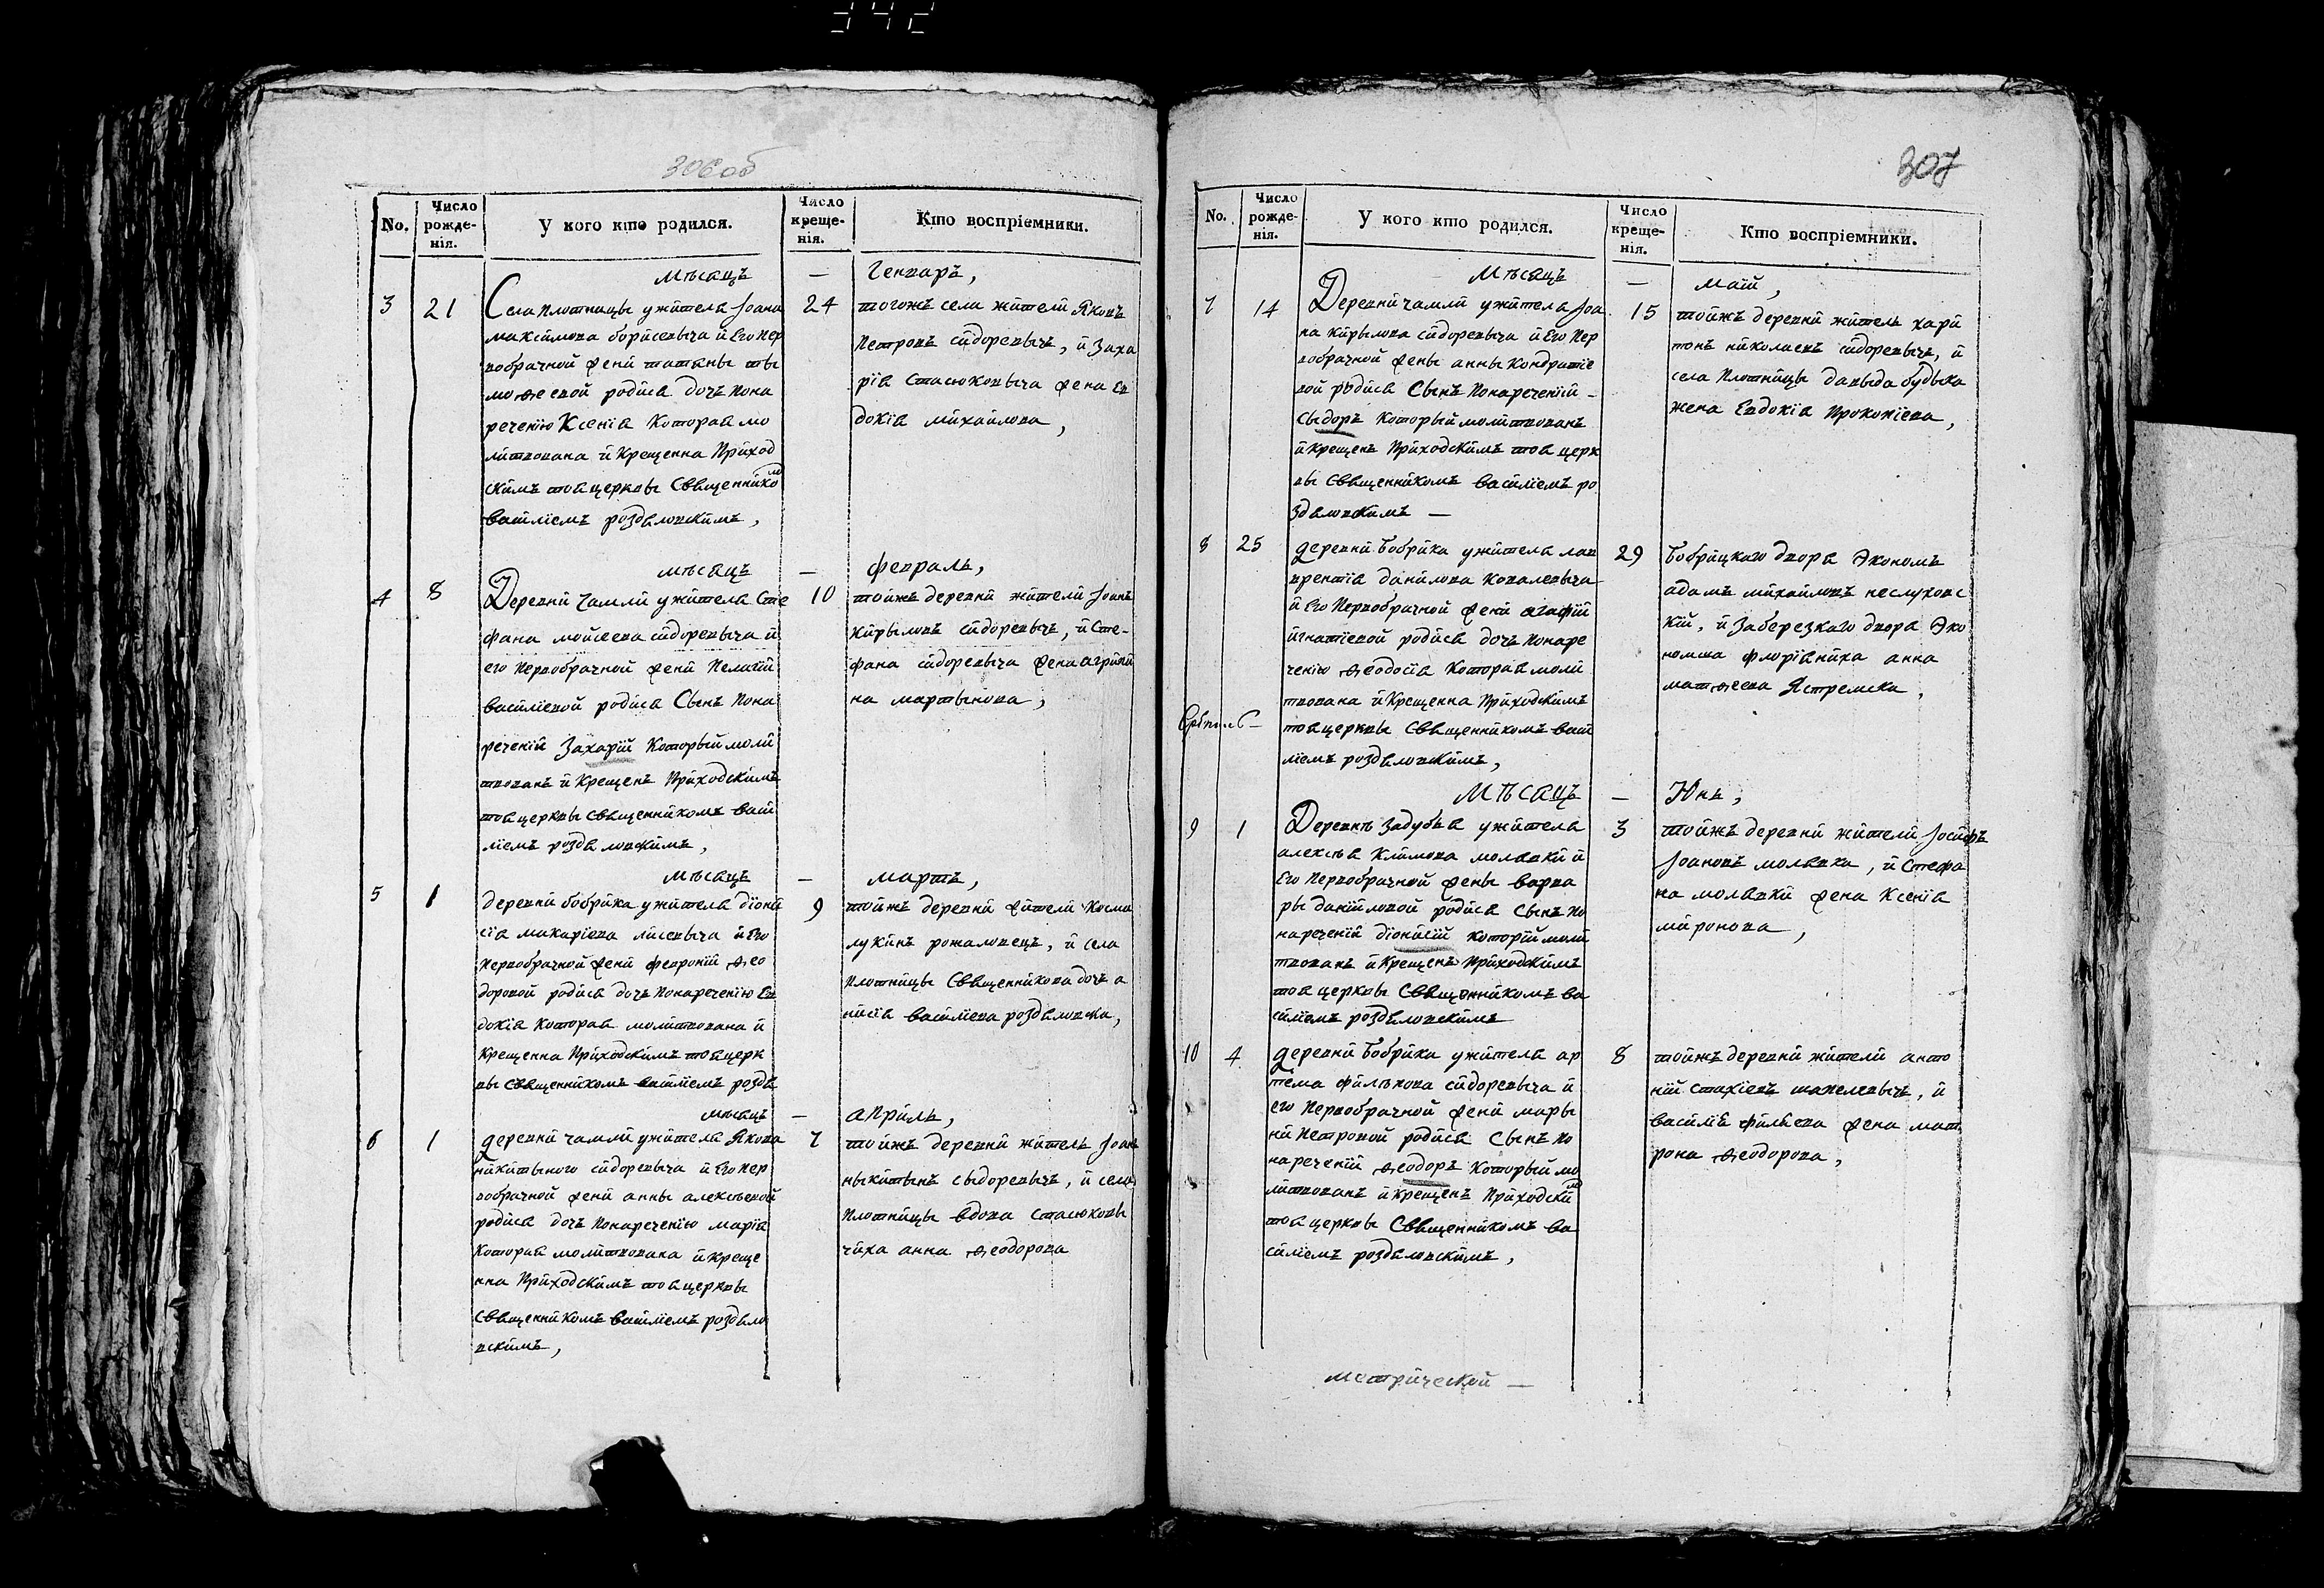 342
306об
No.
Число рожде-нія.
У кого кто родился.
Число креще-нія.
Кто воспріемники.
Мѣсяцъ — Генваръ,
3 21
Села Плотницы ужителя Іоана
максимова борисевыча и Его Пер
вобрачной жени татяны ты
моѳеевой родися дочъ Пона
речению Ксенія Которая мо
литвована и Крещенна Приход
скимъ тоя церквы Священнико
м
василіемъ роздяловскимъ,
24
тогожъ села жители Яковъ
Петровъ сидоревычъ, и Заха
рія Стасюковыча жена Ев
докія михайлова,
мѣсяцъ — февраль,
4 8
Деревни Чамли ужителя Сте
фана мойсеева сидоревыча и
его Первобрачной жени Пелагіи
василіевой родися Сынъ Пона
реченіи Захарій Который моли
твованъ и Крещенъ Приходскимъ
тоя церквы священникомъ васи
ліемъ роздяловскимъ,
10
тойжъ деревни жители Іоанъ
Кирыловъ сидоревычъ, и Сте-
фана сидоревыча жена агрипи
на мартынова,
мѣсяцъ — мартъ,
5 1
деревни бобрика ужителя діони
сія макаріева лисевыча и Его
Первобрачной жени февроніи ѳео
доровой родися дочъ Понаречению Ев
докія Которая молитвована и
Крещенна Приходскимъ тоя церк
вы священникомъ василіемъ роздя
9
тойжъ деревни жители Косма
лукинъ рожаловецъ, и села
Плотницы Священникова дочъ а
нисія василіева роздяловска,
мѣсяцъ — априль,
6 1
деревни чамли ужителя Якова
никитыного сидоревыча и Его Пер
вобрачной жени анны алексѣевой
родися дочъ Понаречению марія
Которая молитвована и Креще
нна Приходскимъ тоя церквы
Священникомъ василіемъ роздяло
вскимъ,
7
тойжъ деревни житель Іоанъ
ныкитынъ сыдоревычъ, и села
Плотницы вдова Стасюковы
чиха анна ѳеодорова
307
No.
Число рожде-нія.
У кого кто родился.
Число креще-нія.
Кто воспріемники.
Мѣсяцъ — май,
7 14
Деревни чамли ужителя Іоа
на Кирылова сидоревыча и Его Пер
вобрачной жены анны Кондратіе
вой родися Сынъ Понареченіи —
Сыдоръ Который молитвованъ
и Крещенъ Приходскимъ тоя церк
вы Священникомъ василіемъ ро
здяловскимъ —
15
тойжъ деревни житель хари
тонъ николаевъ сидоревычъ, и
села Плотницы давыда будыка
жена Евдокія Прокопіева,
8 25
деревни бобрика ужителя лав
врентія данилова Ковалевыча
и Его Первобрачной жени агафіи
игнатіевой родися дочъ Понаре
чению ѳеодосія Которая моли
твована и Крещенна Приходскимъ
тоя церквы Священникомъ васи
ліемъ роздяловскимъ,
29
бобрицкаго двора Экономъ
адамъ михайловъ неслуховс
кій, и Заберезкаго двора Эко
номша флоріаниха анна
матѳеева Ястремска,
Мѣсяцъ — Юнь,
9 1
Деревнѣ Задубья ужителя
алексѣя Климова молявки и
Его Первобрачной жены варва
ры даниловой родися Сынъ По
нареченіи діонисій которій моли
твованъ и Крещенъ Приходскимъ
тоя церквы Священникомъ ва
силіемъ роздяловскимъ
3
тойжъ деревни жители Іосифъ
Іоановъ молявка, и Стефа
на молявки жена Ксенія
миронова,
10 4
деревни бобрика ужителя ар
тема филъкова сидоревыча и
его Первобрачной жени мары
ни Петровой родися Сынъ По
нареченіи ѳеодоръ Который мо
литвованъ и крещенъ Приходски
м
тоя церквы Священникомъ ва
силіемъ роздяловскимъ,
8
тойжъ деревни жители анто
ній стахіевъ шапелевычъ, и
василія филиева жена мат
рона ѳеодорова,
метрической —